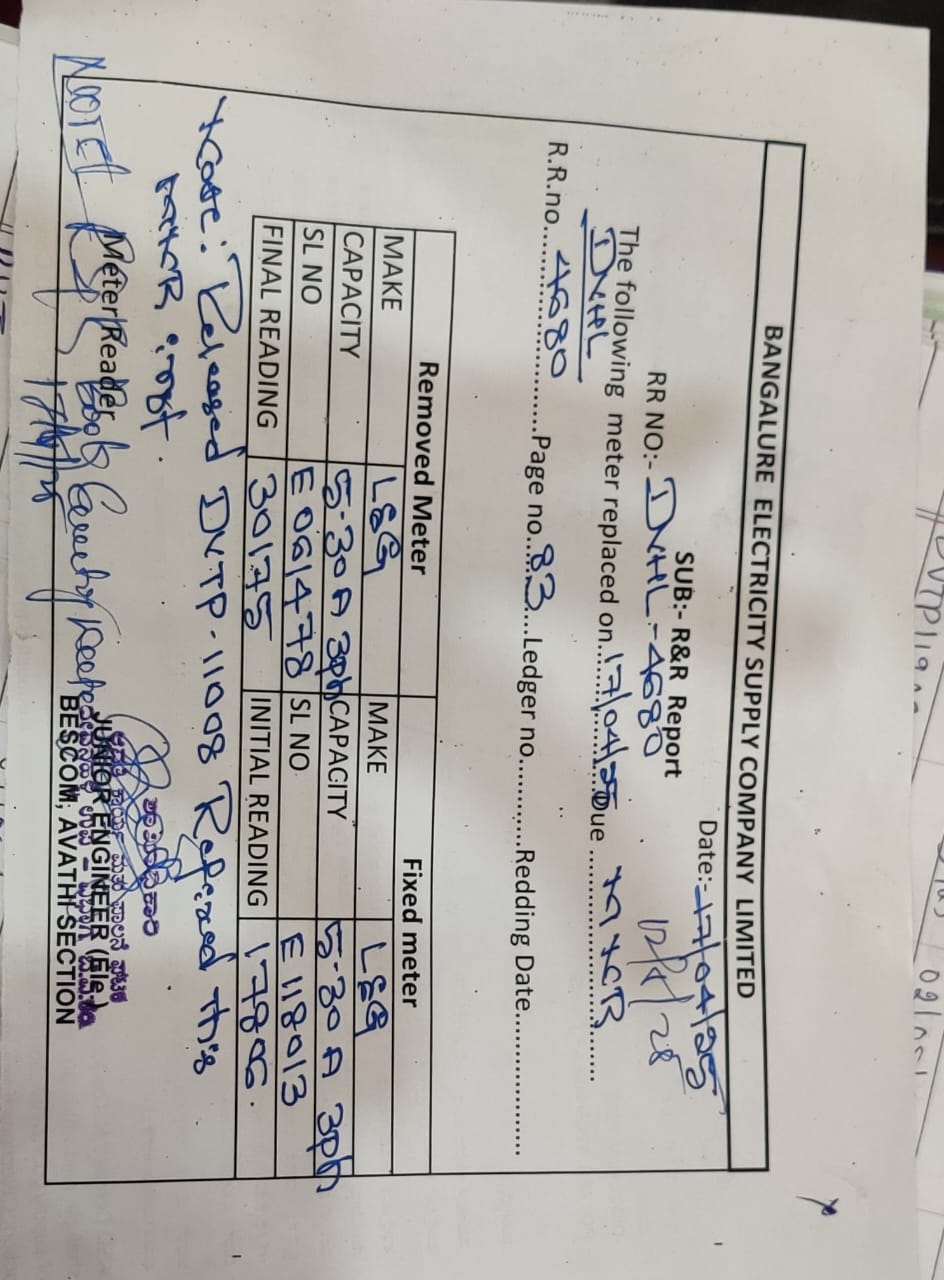 BANGALURE ELECTRICITY SUPPLY COMPANY LIMITED
Date:-17/04/25
SUB:- R&R Report
RR NO:- DVHL-4680
The following meter replaced on 17/04/25 Due
DVHL
R.R.no 4680 Page no 83 Ledger no Redding Date
Removed Meter Fixed meter
MAKE L&G MAKE L&G
CAPACITY 5-30 A 3ph CAPACITY 5-30 A 3ph
SL NO E 061478 SL NO E 118013
FINAL READING 30175 INITIAL READING 17806.
Released DVTP-11008
Meter Reader
JUNIOR ENGINEER (Ele)
BESCOM, AVATHI SECTION